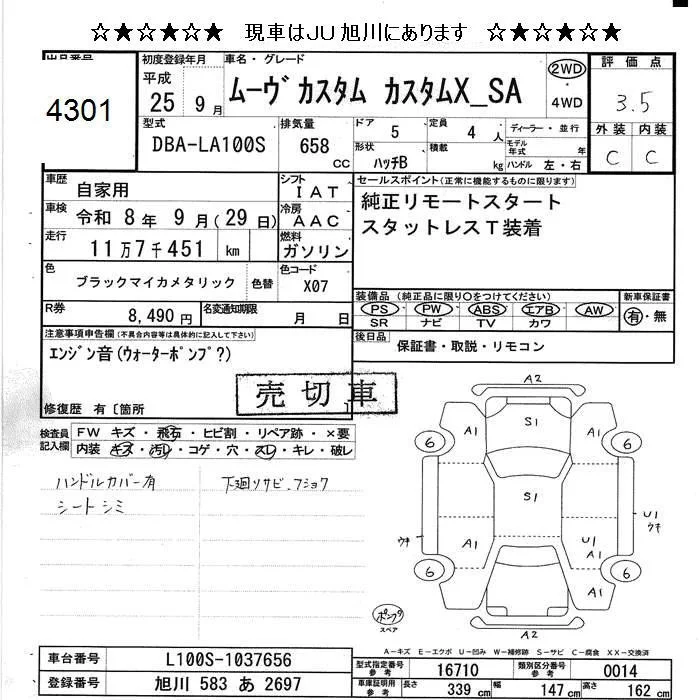 ☆★☆★☆★☆ 現車はJU旭川にあります ☆★☆★☆★☆
出品番号
4301
初度登録年月
平成
25 9月
車名・グレード
ムーヴカスタム カスタムX_SA
2WD
・
4WD
評価点
3.5
外装 内装
C C
型式
DBA-LA100S
排気量
658
cc
ドア 5
定員 4 人
ディーラー・並行
形状 ハッチB
積載 kg
モデル年式 年
ハンドル 左・右
車歴 自家用
シフト
IAT
セールスポイント(正常に機能するものに限ります)
純正リモートスタート
スタットレスT装着
車検 令和 8年 9月(29日)
冷房
AAC
走行 11万7千451 km
燃料
ガソリン
色 ブラックマイカメタリック
色替
色コード
X07
R券 8,490円
名変通知期限 月 日
装備品 (純正品に限り○をつけてください)
PS PW ABS エアB AW
SR ナビ TV カワ
新車保証書
有・無
注意事項申告欄(不具合内容等は具体的に記入して下さい)
エンジン音(ウォーターポンプ?)
後日品 保証書・取説・リモコン
修復歴 有〔箇所
売切車
検査員記入欄
FW キズ・飛石・ヒビ割・リペア跡・×要
内装 キズ・汚レ・コゲ・穴・スレ・キレ・破レ
ハンドルカバー有
シートシミ
下廻リサビ、フショク
A2
A1 S1 A1
6 6
S1
ウキ U1
ウキ
A1 U1
A1
6 6
A2
ポンプ
スペア
A-キズ E-エクボ U-凹み W-補修跡 S-サビ C-腐食 XX-交換済
車台番号 L100S-1037656
登録番号 旭川 583 あ 2697
型式指定番号
参考
16710
類別区分番号
参考
0014
車庫証明用
参考
長さ 339 cm
幅 147 cm
高さ 162 cm